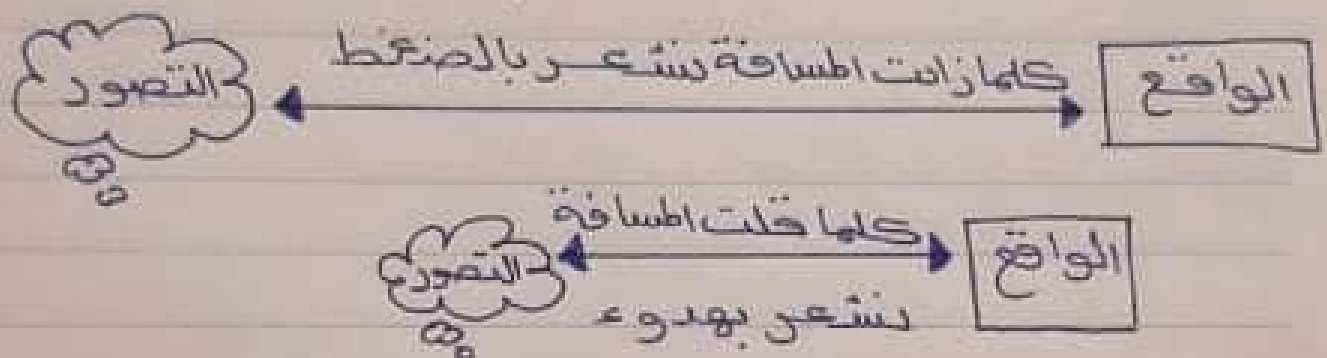 الواقع
كلما زادت المسافة نشعر بالضغط
التصور
الواقع
كلما قلت المسافة
نشعر بهدوء
التصور